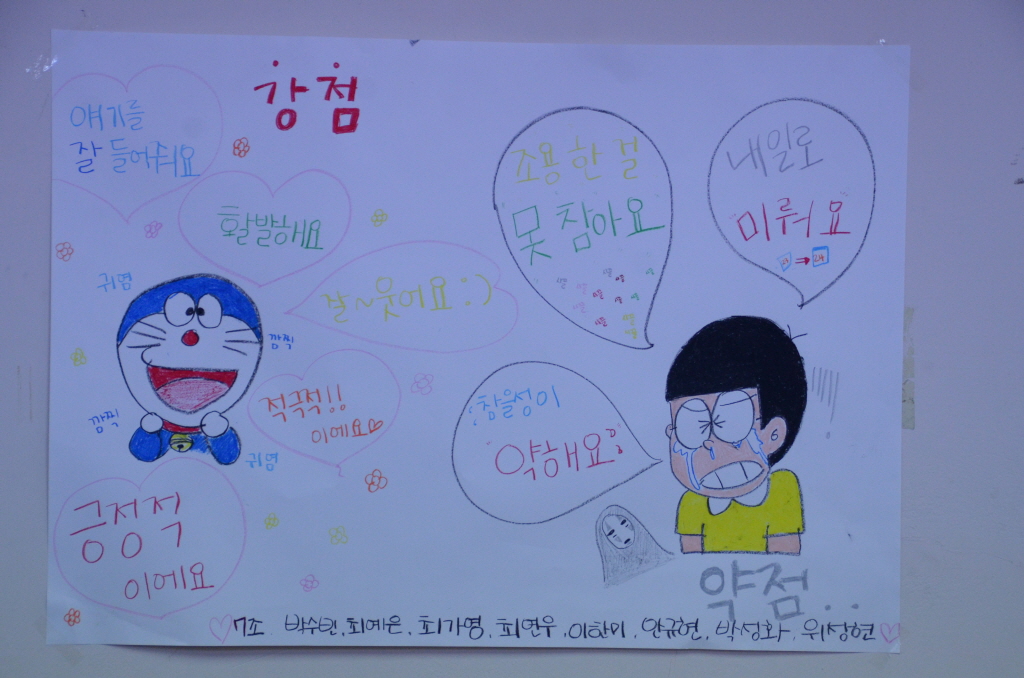 강점
얘기를
잘 들어줘요
활발해요
잘~웃어요:)
적극적!!
이에요
긍정적
이에요
귀염
깜찍
깜찍
귀염
조용한 걸
못 참아요
내일로
"미뤄요"
23 → 24
참을성이
약해요
약점..
7조 박수빈, 최예은, 최가영, 최연우, 이한미, 안규현, 박성화, 위성현